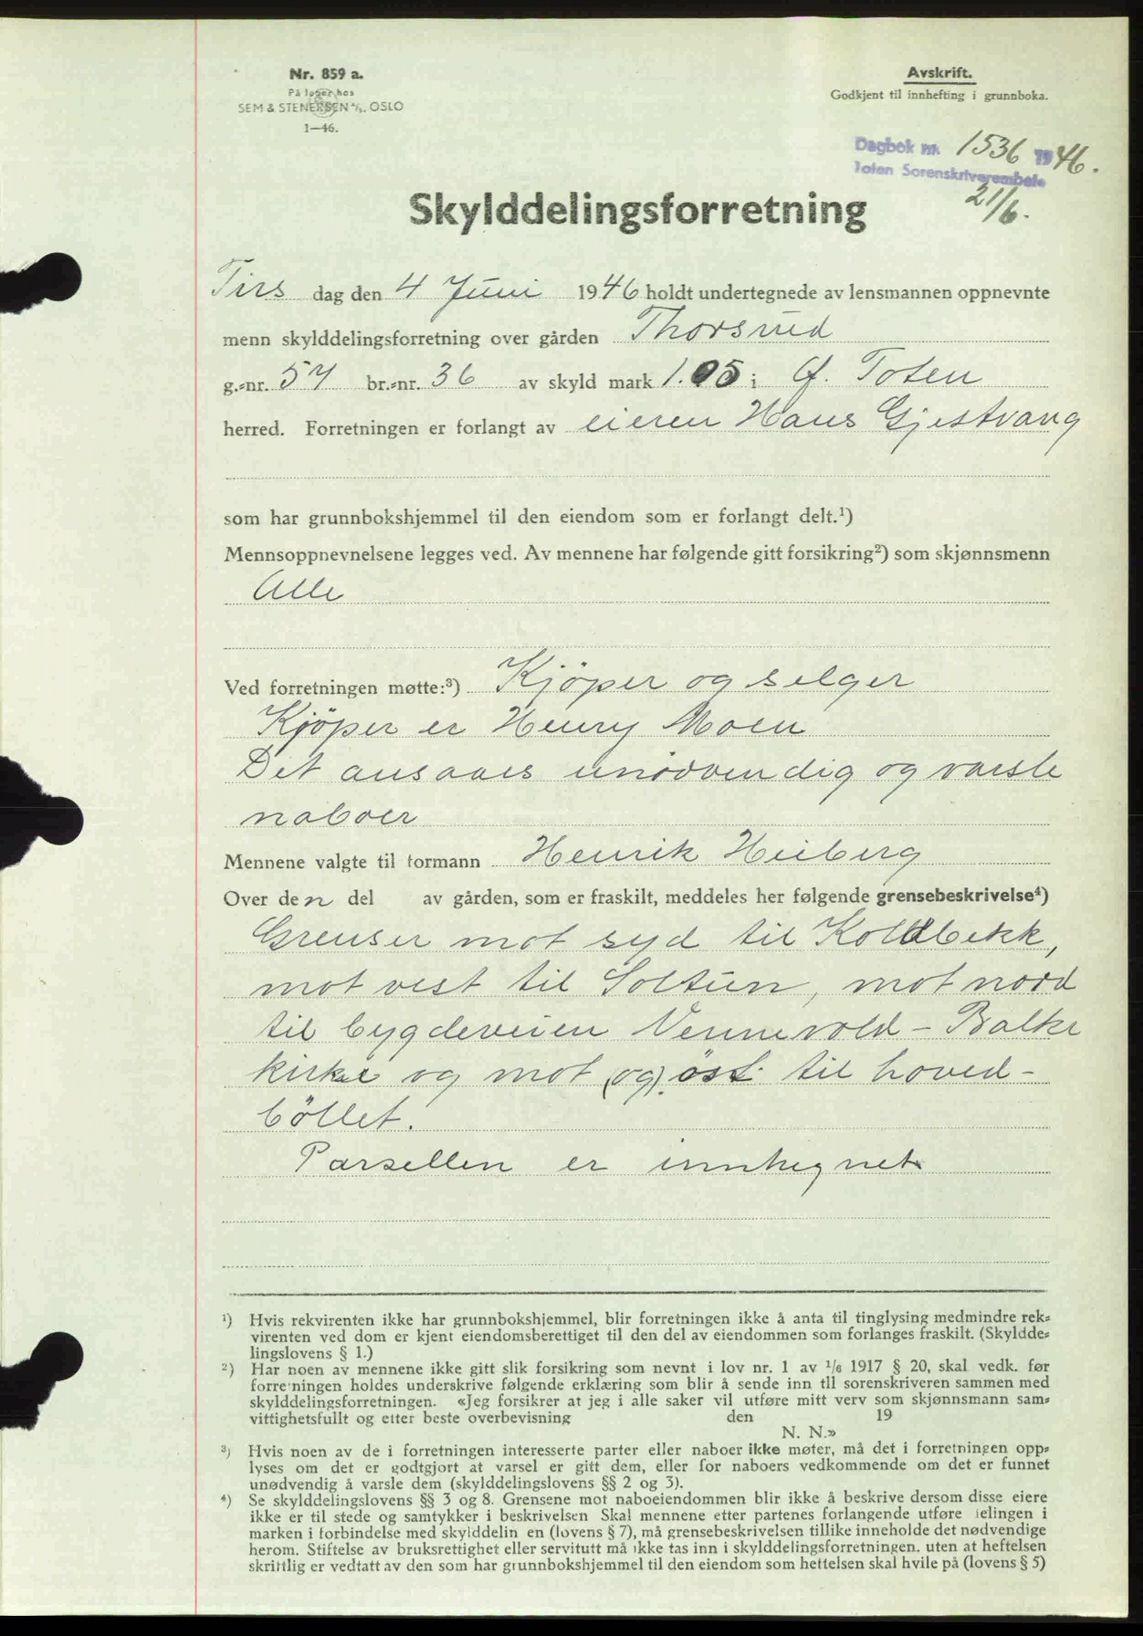 Nr. 859 a.
På lager hos
SEM & STENERSEN A/S. OSLO
1—46.
Avskrift.
Godkjent til innhefting i grunnboka.
Dagbok nr. 1536 1946.
Toten Sorenskriverembete
21/6.
Skylddelingsforretning
Tirs dag den 4 Juni 1946 holdt undertegnede av lensmannen oppnevnte
menn skylddelingsforretning over gården Thorsrud
g.-nr. 57 br.-nr. 36 av skyld mark 1.05 i Ø. Toten
herred. Forretningen er forlangt av eieren Hans Gjestvang
som har grunnbokshjemmel til den eiendom som er forlangt delt.¹)
Mennsoppnevnelsene legges ved. Av mennene har følgende gitt forsikring²) som skjønnsmenn
Alle
Ved forretningen møtte:³) Kjöper og selger
Kjöper er Henry Moen
Det ansaaes unødvendig og varsle
naboer
Mennene valgte til formann Henrik Heiberg
Over den del av gården, som er fraskilt, meddeles her følgende grensebeskrivelse⁴)
Grenser mot syd til Koldbekk,
mot vest til Soltun, mot nord
til bygdeveien Vennevold – Balke
kirke og mot (og) öst til hoved-
böllet.
Parsellen er innhegnet
¹) Hvis rekvirenten ikke har grunnbokshjemmel, blir forretningen ikke å anta til tinglysing medmindre rek-
virenten ved dom er kjent eiendomsberettiget til den del av eiendommen som forlanges fraskilt. (Skyldde-
lingslovens § 1.)
²) Har noen av mennene ikke gitt slik forsikring som nevnt i lov nr. 1 av 1/6 1917 § 20, skal vedk. før
forretningen holdes underskrive følgende erklæring som blir å sende inn til sorenskriveren sammen med
skylddelingsforretningen. «Jeg forsikrer at jeg i alle saker vil utføre mitt verv som skjønnsmann sam-
vittighetsfullt og etter beste overbevisning den 19
N. N.»
³) Hvis noen av de i forretningen interesserte parter eller naboer ikke møter, må det i forretningen opp-
lyses om det er godtgjort at varsel er gitt dem, eller for naboers vedkommende om det er funnet
unødvendig å varsle dem (skylddelingslovens §§ 2 og 3).
⁴) Se skylddelingslovens §§ 3 og 8. Grensene mot naboeiendommen blir ikke å beskrive dersom disse eiere
ikke er til stede og samtykker i beskrivelsen Skal mennene etter partenes forlangende utføre delingen i
marken i forbindelse med skylddelin en (lovens § 7), må grensebeskrivelsen tillike inneholde det nødvendige
herom. Stiftelse av bruksrettighet eller servitutt må ikke tas inn i skylddelingsforretningen. uten at heftelsen
skriftlig er vedtatt av den som har grunnbokshjemmel til den eiendom som heftelsen skal hvile på (lovens § 5)